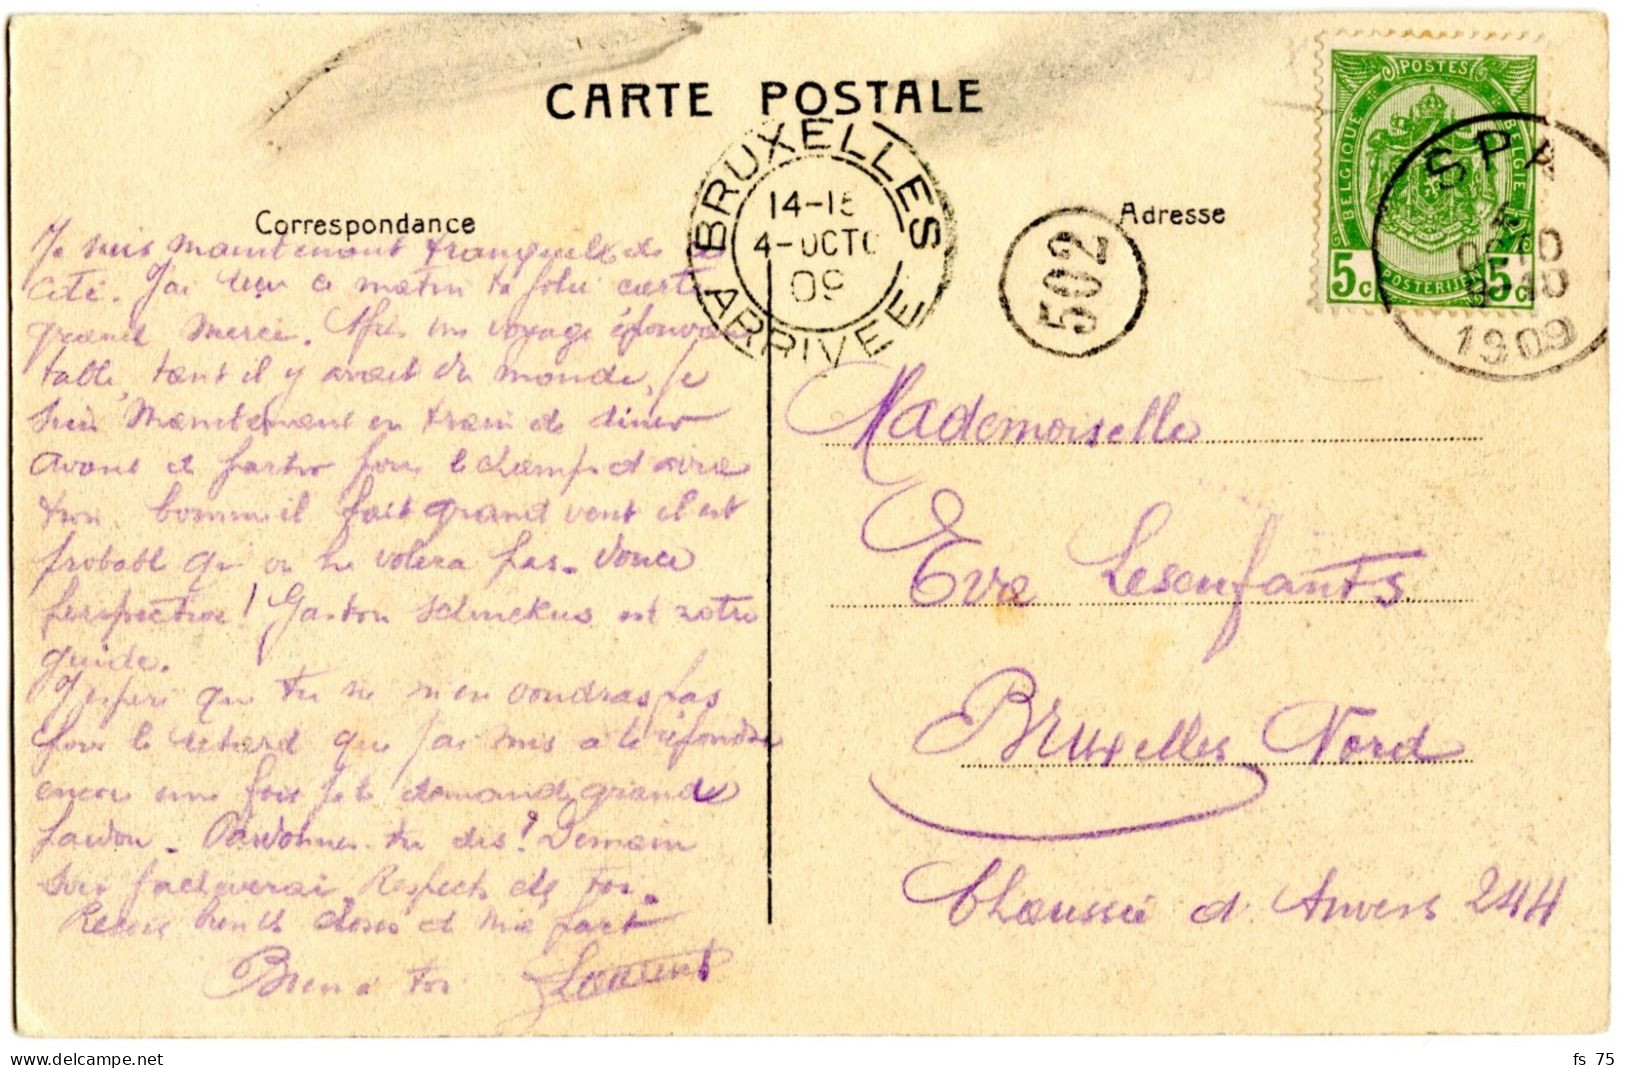 CARTE POSTALE
Correspondance
Adresse
BRUXELLES
14-15
4-OCTO
09
ARRIVEE
502
POSTES
BELGIQUE
BELGIE
POSTERIJEN
5c 5c
SPA
4
OCTO
1909
Je suis maintenant tranquille de
côté. J'ai reçu ce matin ta jolie carte
grand merci. Après un voyage épouvan
table, tant il y avait du monde, je
suis maintenant en train de diner
avant de partir pour le champ d'avia
tion. Comme il fait grand vent il est
probable qu'on ne volera pas. Douce
perspective! Gaston est notre
guide.
J'espère que tu ne m'en voudras pas
pour le retard que j'ai mis à te répondre
encore une fois je te demande grand
pardon. Pardonnes-tu dis? Demain
soir Respects de toi.
Reçois bonnes et ma part
Bien à toi Laurent
Mademoiselle
Eva Lesenfants
Bruxelles Nord
Chaussée d'Anvers 244
fs 75